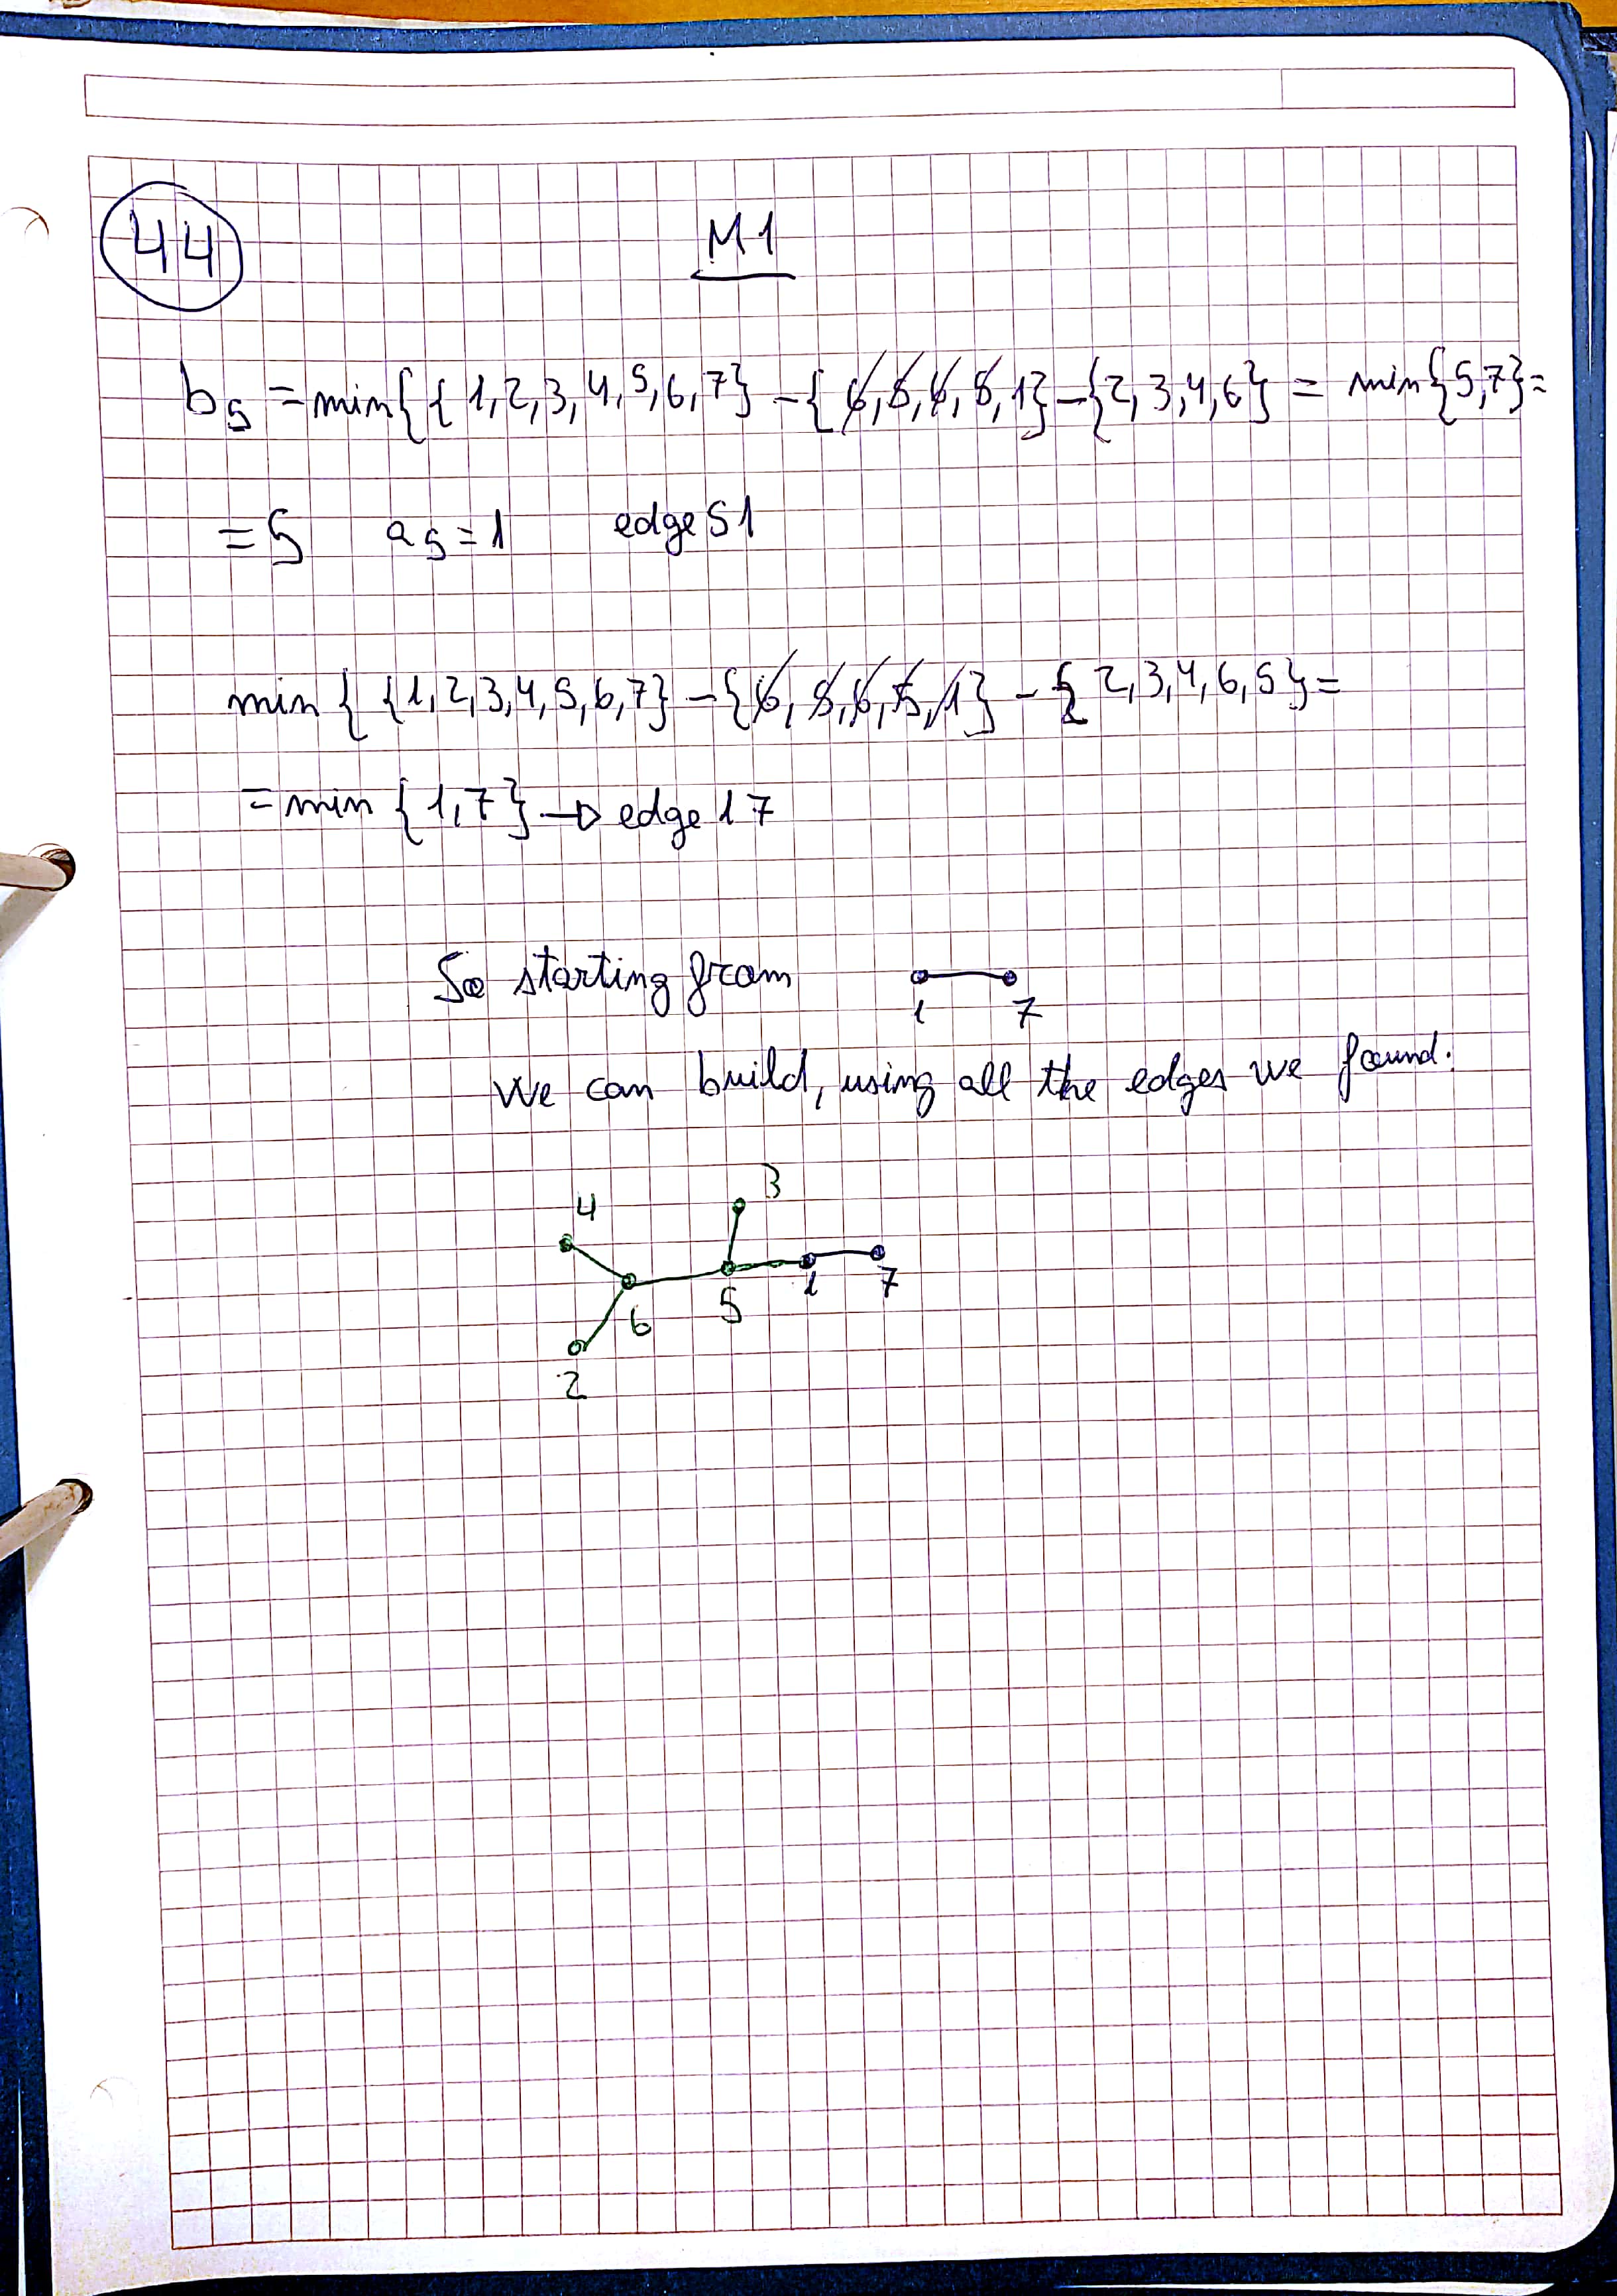 44
M1
b₅ = min{ {1,2,3,4,5,6,7} - {6,5,6,5,1} - {2,3,4,6} = min{5,7} =
= 5 a₅ = 1 edge 51
min { {1,2,3,4,5,6,7} - {6,5,6,5,1} - {2,3,4,6,5} =
= min {1,7} → edge 17
So starting from 1 7
We can build, using all the edges we found:
3
4
1 7
6 5
2